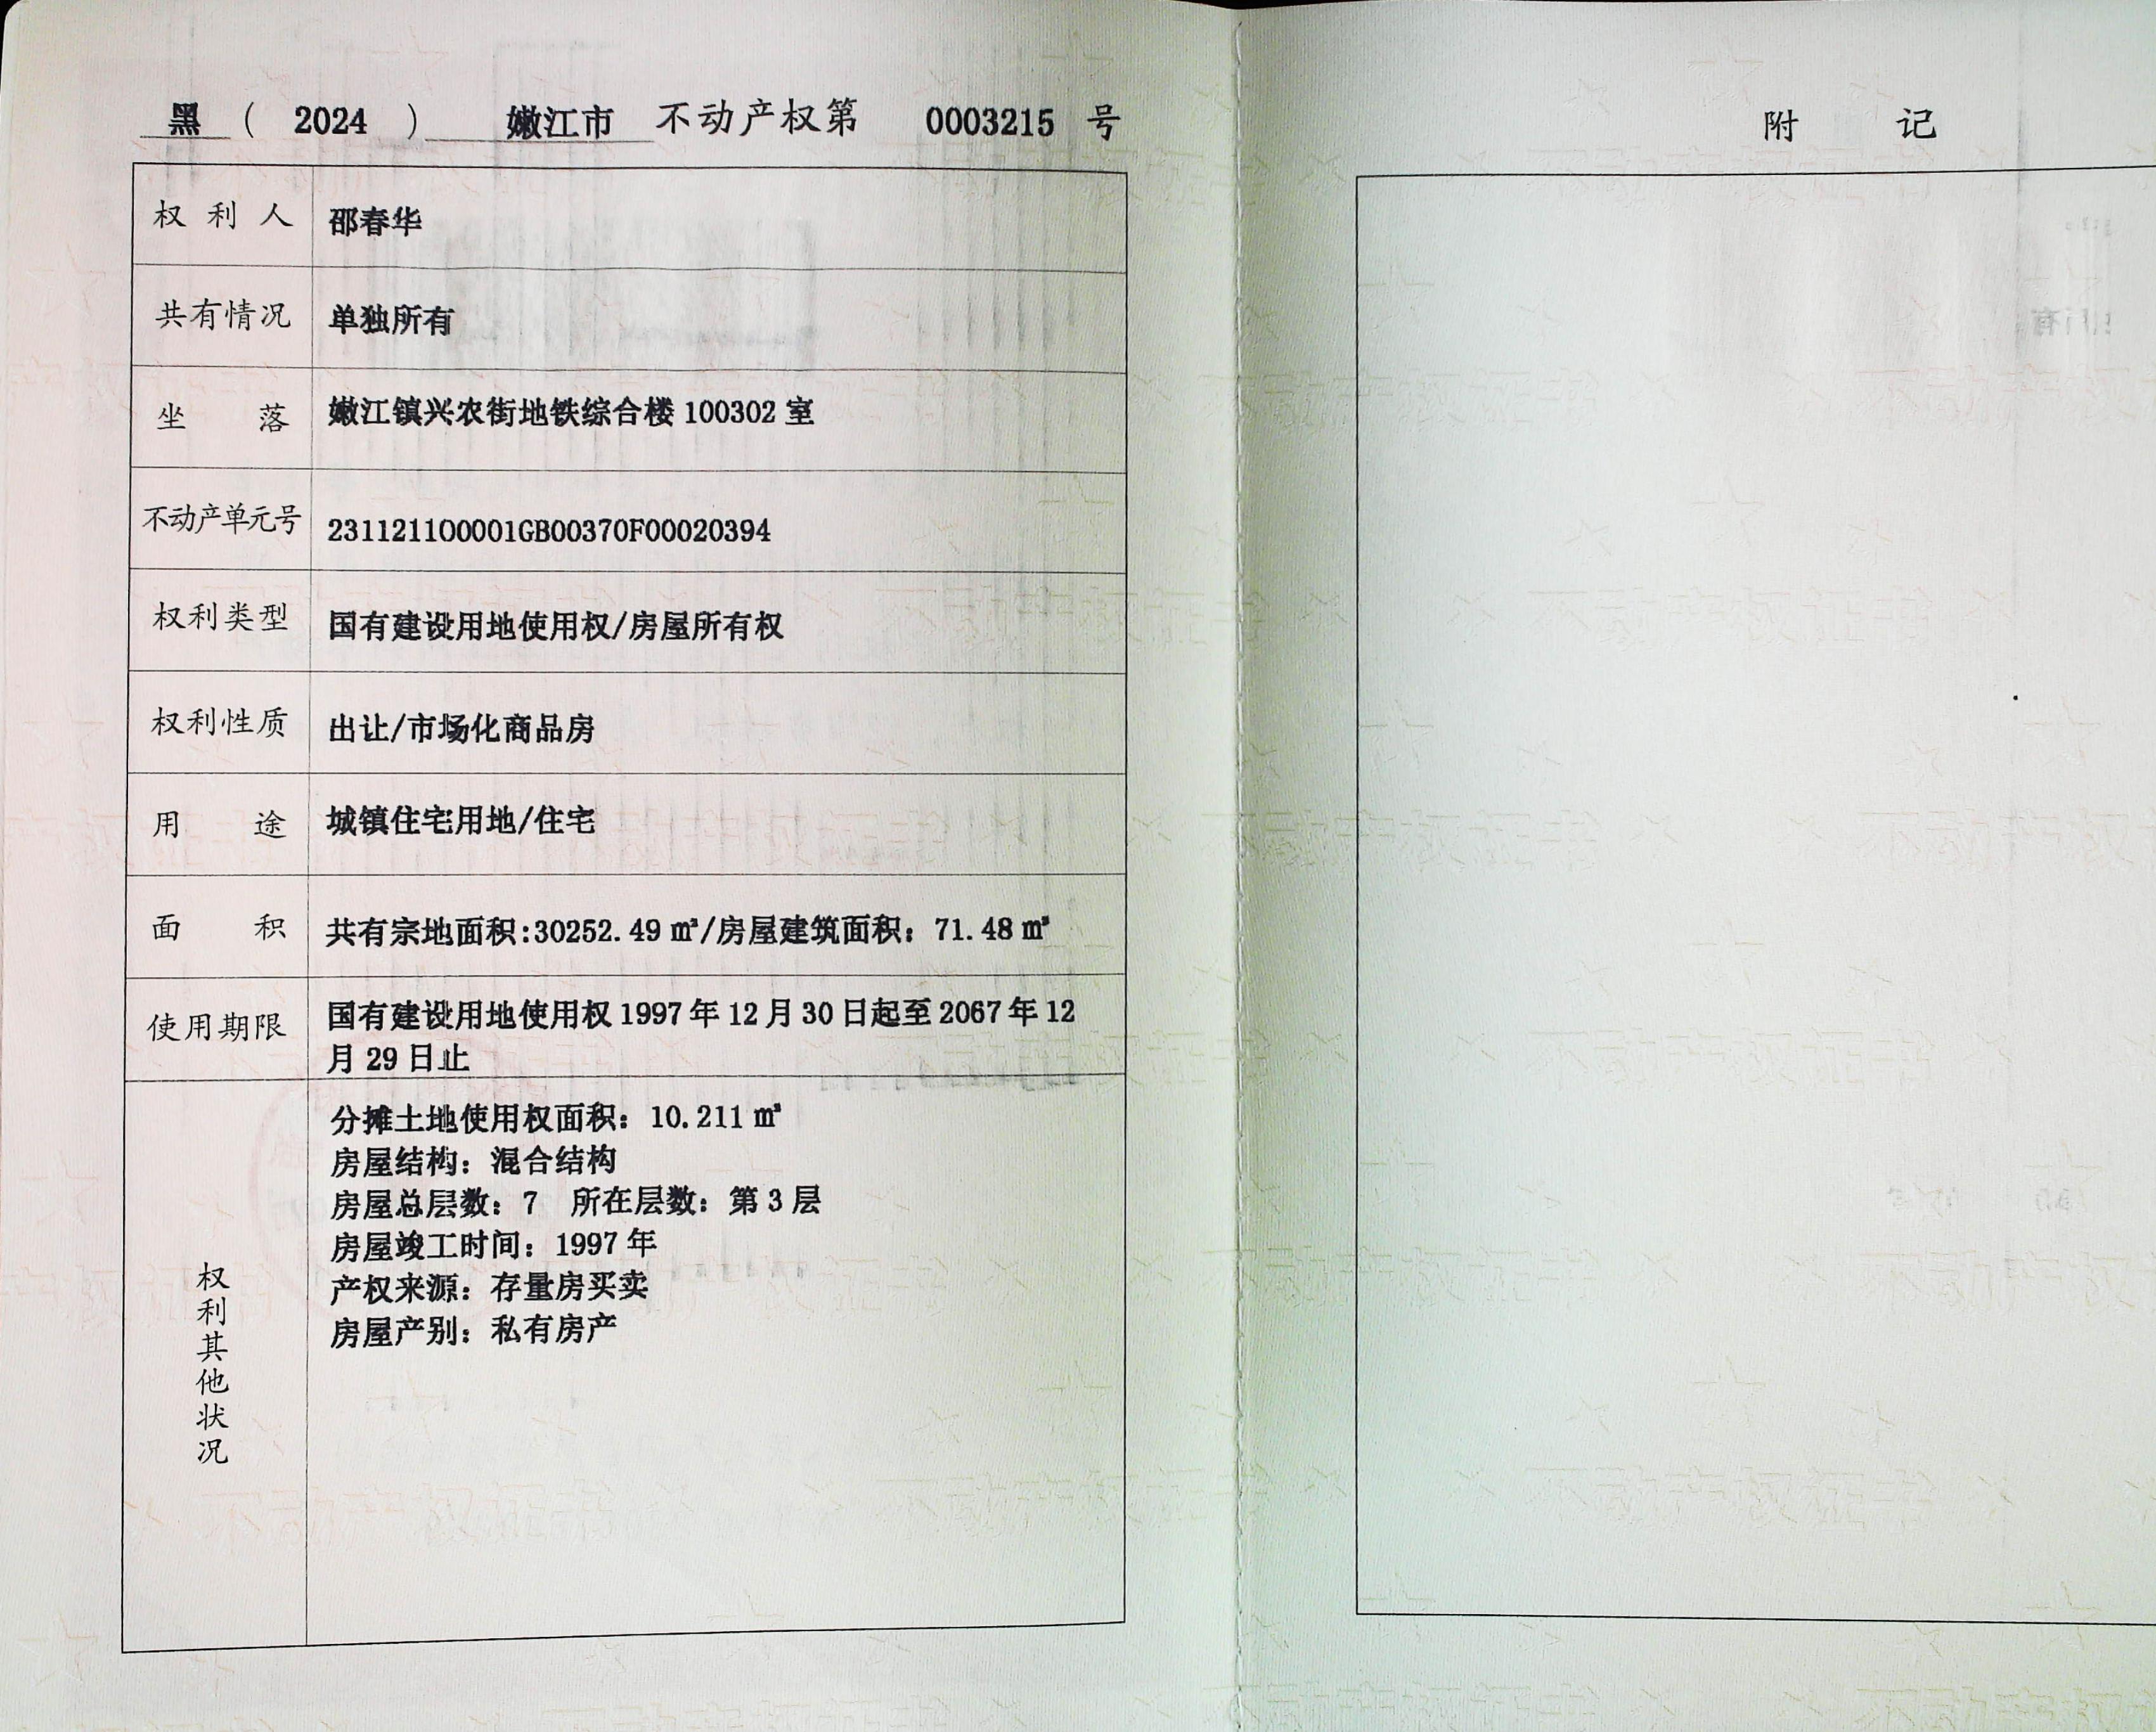 黑 ( 2024 ) 嫩江市 不动产权第 0003215 号
权利人 邵春华
共有情况 单独所有
坐落 嫩江镇兴农街地铁综合楼 100302 室
不动产单元号 231121100001GB00370F00020394
权利类型 国有建设用地使用权/房屋所有权
权利性质 出让/市场化商品房
用途 城镇住宅用地/住宅
面积 共有宗地面积:30252.49 ㎡/房屋建筑面积: 71.48 ㎡
使用期限 国有建设用地使用权 1997 年 12 月 30 日起至 2067 年 12
月 29 日止
权利其他状况
分摊土地使用权面积: 10.211 ㎡
房屋结构: 混合结构
房屋总层数: 7 所在层数: 第 3 层
房屋竣工时间: 1997 年
产权来源: 存量房买卖
房屋产别: 私有房产
附记